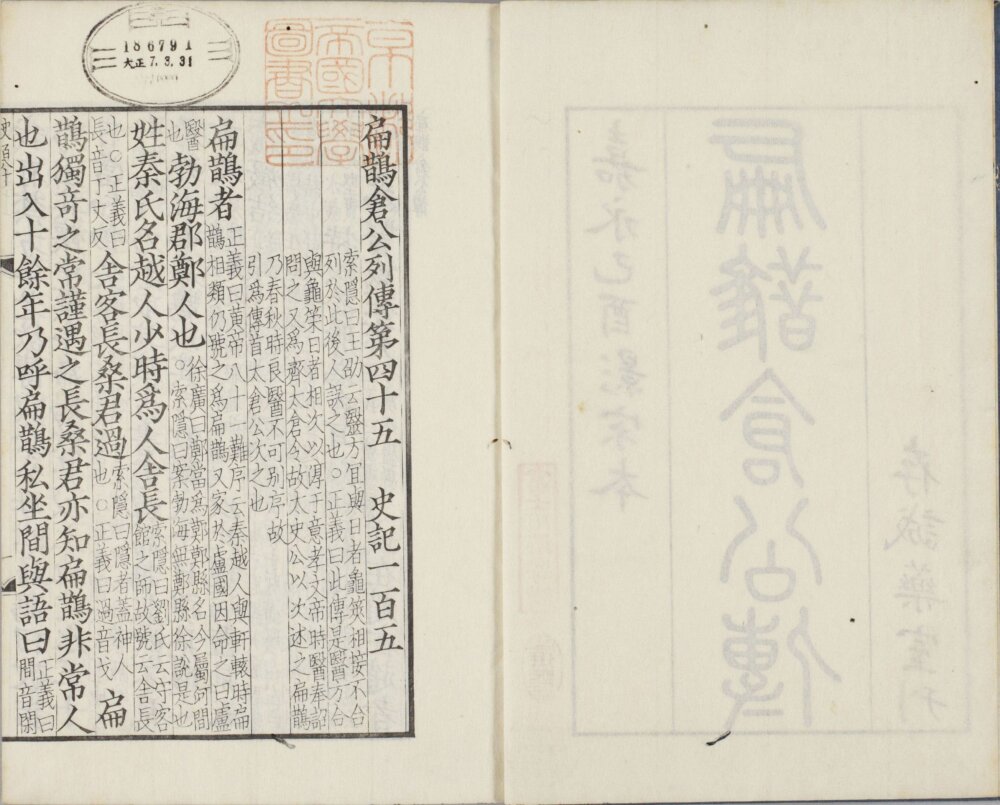 存誠藥室刊
扁鵲倉公傳
嘉永己酉影宋本
186791
大正7.3.31
京都帝國大學圖書之印
扁鵲倉公列傳第四十五 史記一百五
索隱曰王劭云醫方宜與日者龜筴相接不合
列於此後人誤之也○正義曰此傳是醫方合
與龜筴日者相次以淳于意孝文帝時醫奉詔
問之又爲齊太倉令故太史公以次述之扁鵲
乃春秋時良醫不可别序故
引爲傳首太倉公次之也
扁鵲者 正義曰黃帝八十一難序云秦越人與軒轅時扁鵲相類仍號之爲扁鵲又家於盧國因命之曰盧
醫也 勃海郡鄭人也 徐廣曰鄭當爲鄚鄚縣名今屬河間○索隱曰案勃海無鄭縣徐說是也
姓秦氏名越人少時爲人舍長 索隱曰劉氏云守客館之師故號云舍長
也○正義曰長音丁丈反 舍客長桑君過 索隱曰隱者蓋神人也○正義曰過音戈 扁
鵲獨奇之常謹遇之長桑君亦知扁鵲非常人
也出入十餘年乃呼扁鵲私坐間與語曰 正義曰間音閑